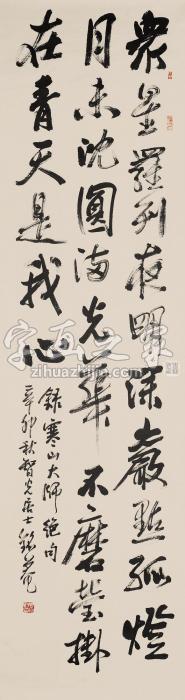 眾星羅列夜明深巖點孤燈
月未沈圓滿光華不磨瑩掛
在青天是我心
錄寒山大師絕句
辛卯秋智光居士
字画之家
zihuazhijia.com